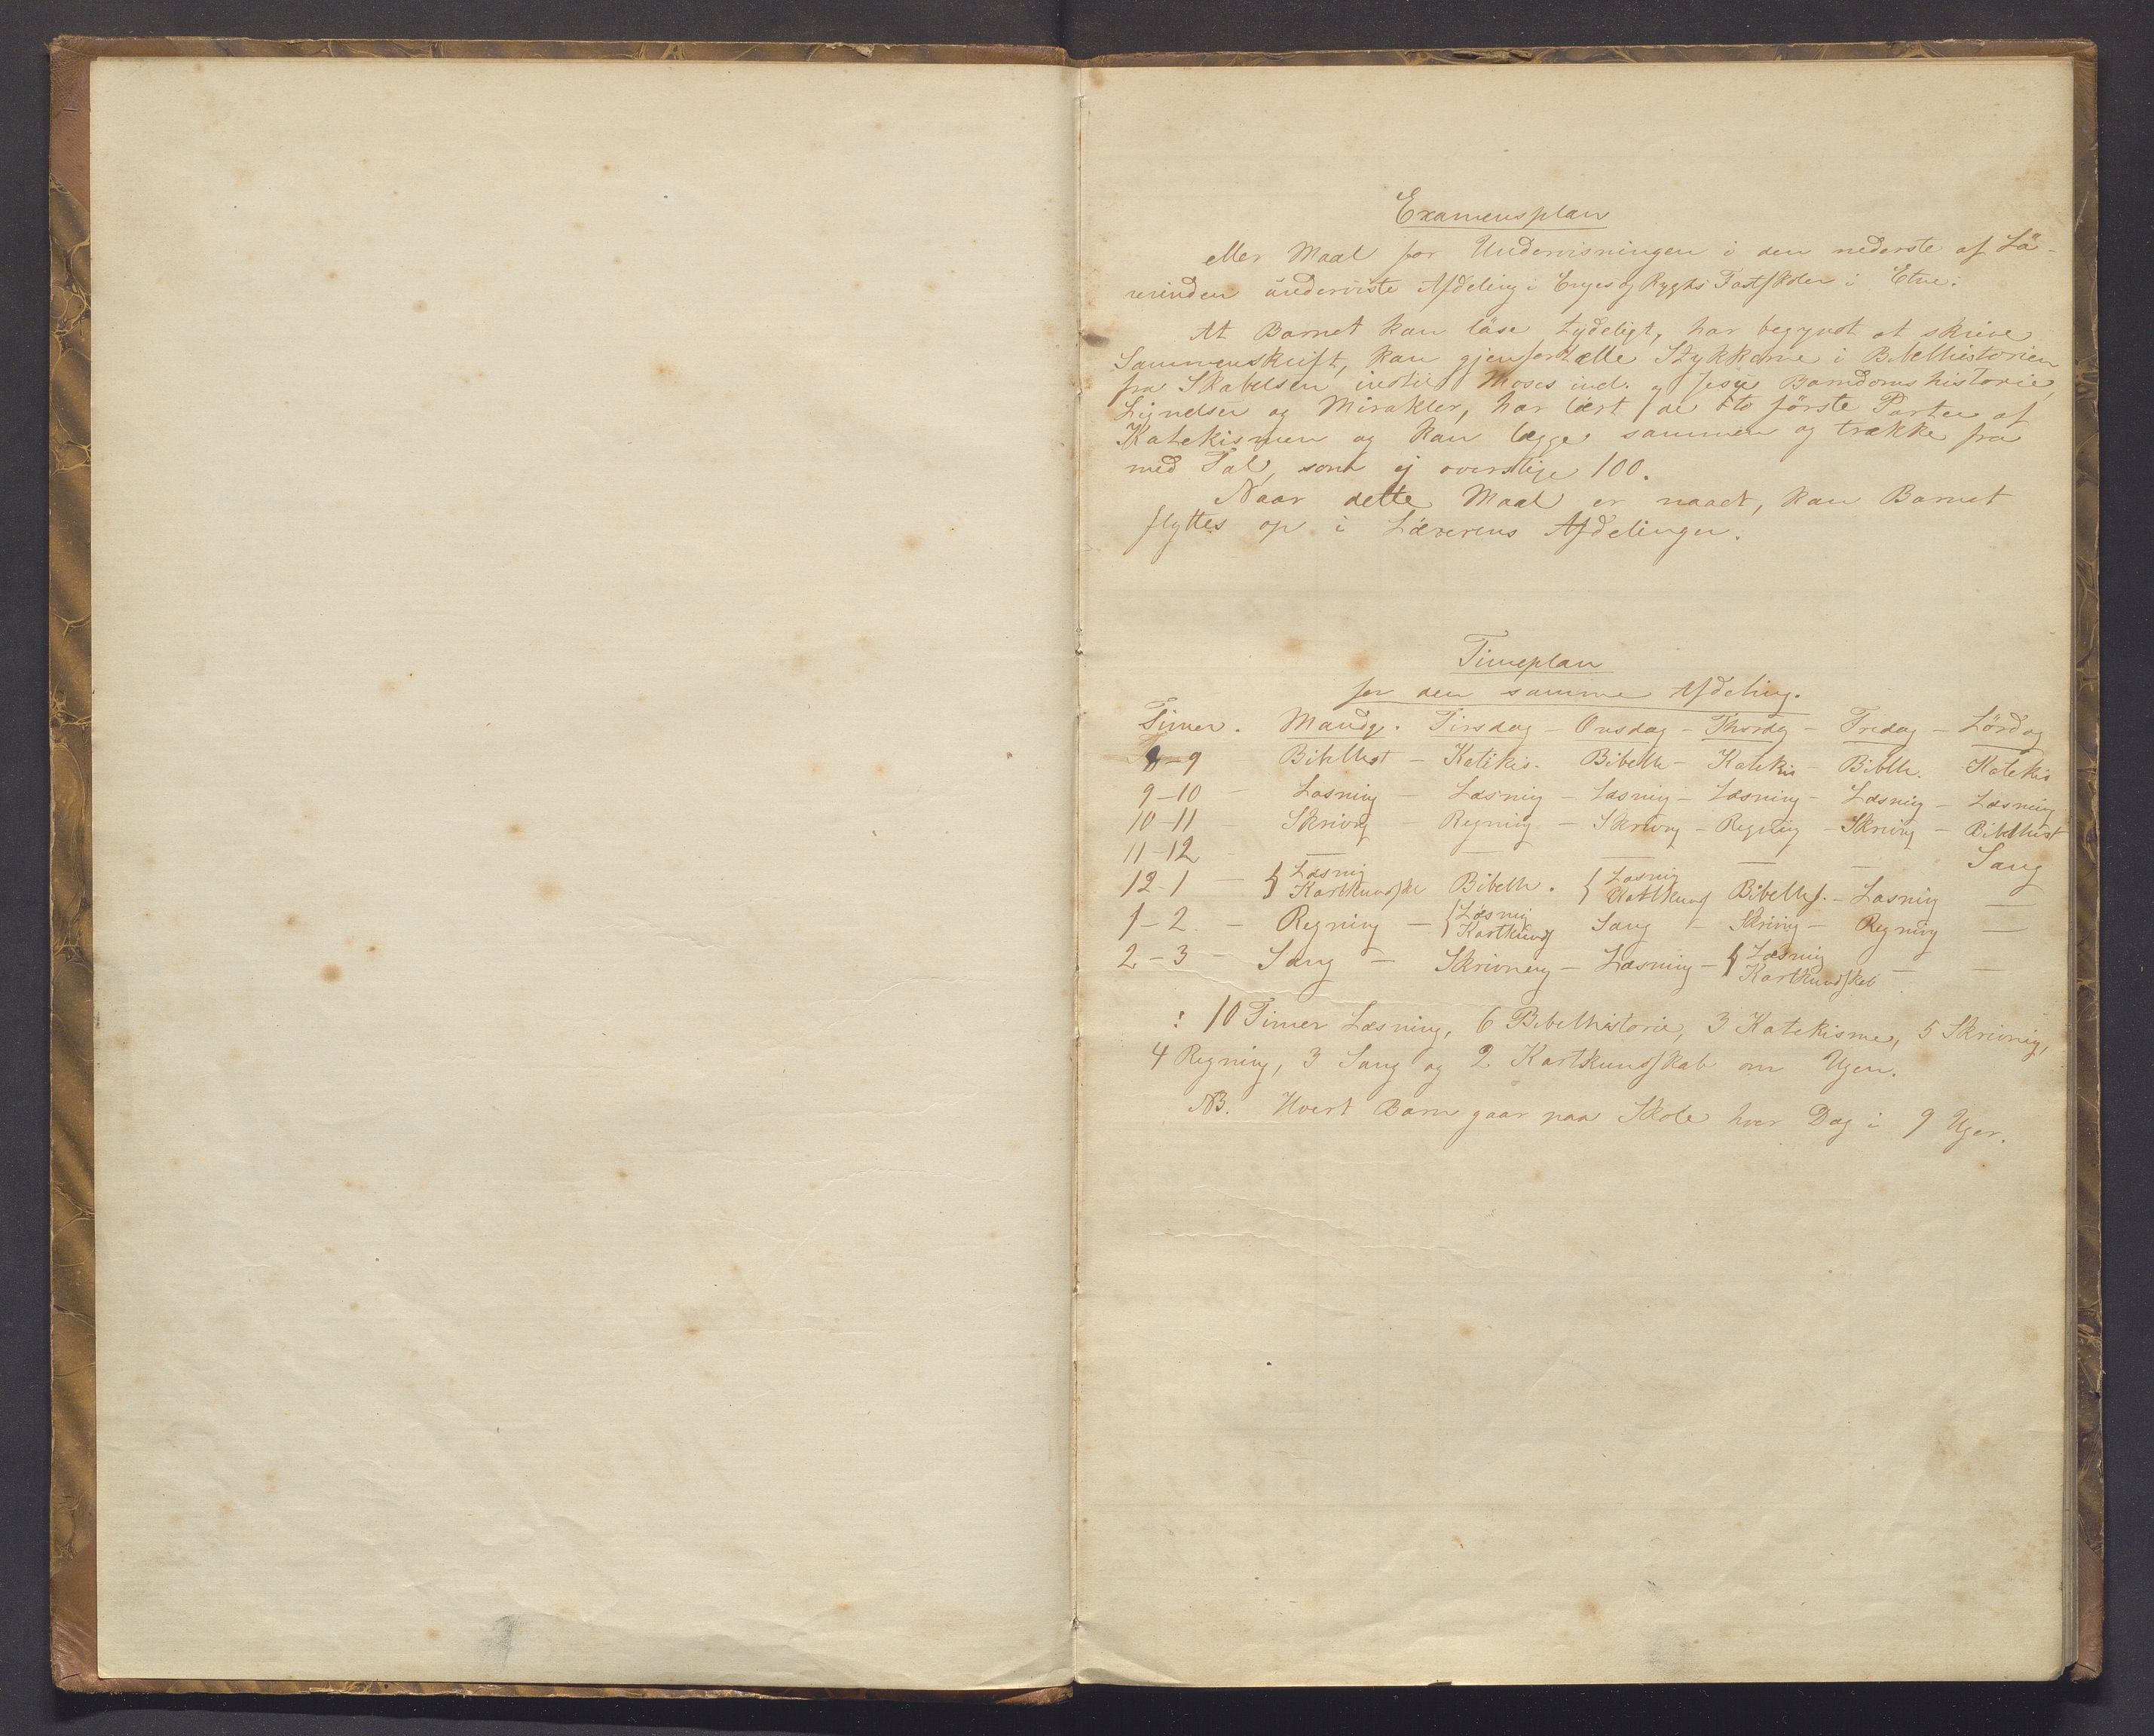 Examensplan
eller Maal for Undervisningen i den nederste af Lä-
rerinden underviste Afdeling i Enges og Ryghs Fastskoler i Etne.
At Barnet kan läse tydeligt, har begyndt at skrive
Sammenskrift, kan gjenfortælle Stykkerne i Bibelhistorien
fra Skabelsen indtil Moses incl. og Jesu Barndomshistorie,
Lignelser og Mirakler, har lært de to förste Parter af
Katekismen og kan lægge sammen og trække fra
med Tal, som ej overstige 100.
Naar dette Maal er naaet, kan Barnet
flyttes op i Lærerens Afdelinger.
Timeplan
for den samme Afdeling.
Timer. Mandg. Tirsdag - Onsdag - Thorsdg - Fredag - Lördag
8-9 Bibelhist - Katekis. Bibelh - Katekis - Bibelh. Katekis
9-10 - Læsning - Læsnig - Læsnig - Læsning - Læsnig - Læsning
10-11 - Skrivng - Regning - Skrivng - Regning - Skrivng - Bibelhist
11-12 - — — — — — Sang
12-1 - { Læsnig Kartkundsk Bibelh. { Læsnig Kartkunds Bibelh. - Læsnig —
1-2. - Regning - { Læsnig Kartkunds Sang - Skrivnig - Regning —
2-3 - Sang - Skrivning - Læsning - { Læsning Kartkundskab - —
: 10 Timer Læsning, 6 Bibelhistorie, 3 Katekisme, 5 Skrivnig,
4 Regning, 3 Sang og 2 Kartkundskab om Ugen.
NB. Hvert Barn gaar paa Skole hver Dag i 9 Uger.